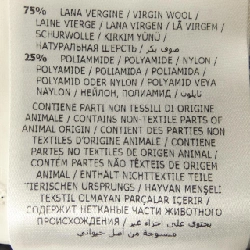 75% LANA VERGINE / VIRGIN WOOL /
LAINE VIERGE / LANA VIRGEN / LÃ VIRGEM /
SCHURWOLLE / KIRKIM YÜNÜ /
НАТУРАЛЬНАЯ ШЕРСТЬ / صوف بكر
25% POLIAMMIDE / POLYAMIDE / NYLON /
POLYAMIDE / POLIAMIDA / POLIAMIDA /
POLYAMID ODER NYLON / POLYAMID VEYA
NAYLON / НЕЙЛОН, ПОЛИАМИД / نايلون
CONTIENE PARTI NON TESSILI DI ORIGINE
ANIMALE / CONTAINS NON-TEXTILE PARTS OF
ANIMAL ORIGIN / CONTIENT DES PARTIES NON
TEXTILES D'ORIGINE ANIMALE / CONTIENE
PARTES NO TEXTILES DE ORIGEN ANIMAL /
CONTÉM PARTES NÃO TÊXTEIS DE ORIGEM
ANIMAL / ENTHÄLT NICHTTEXTILE TEILE
TIERISCHEN URSPRUNGS / HAYVAN MENŞELİ
TEKSTİL OLMAYAN PARÇALAR İÇERİR /
СОДЕРЖИТ НЕТКАНЫЕ ЧАСТИ ЖИВОТНОГО
ПРОИСХОЖДЕНИЯ / يحتوي على أجزاء غير
منسوجة من أصل حيواني